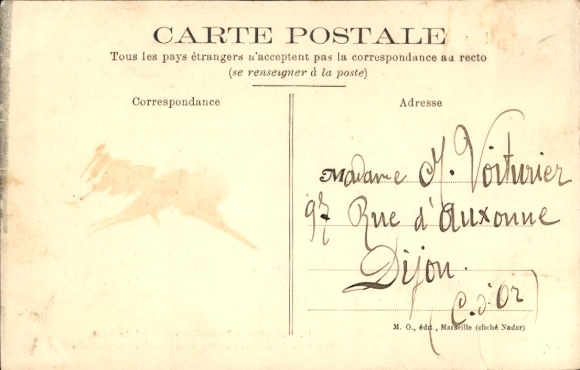 CARTE POSTALE
Tous les pays étrangers n'acceptent pas la correspondance au recto
(se renseigner à la poste)
Correspondance
Adresse
Madame J. Voiturier
97 Rue d'Auxonne
Dijon.
(C. d'Or)
M. O., édit, Marseille (cliché Nadar)